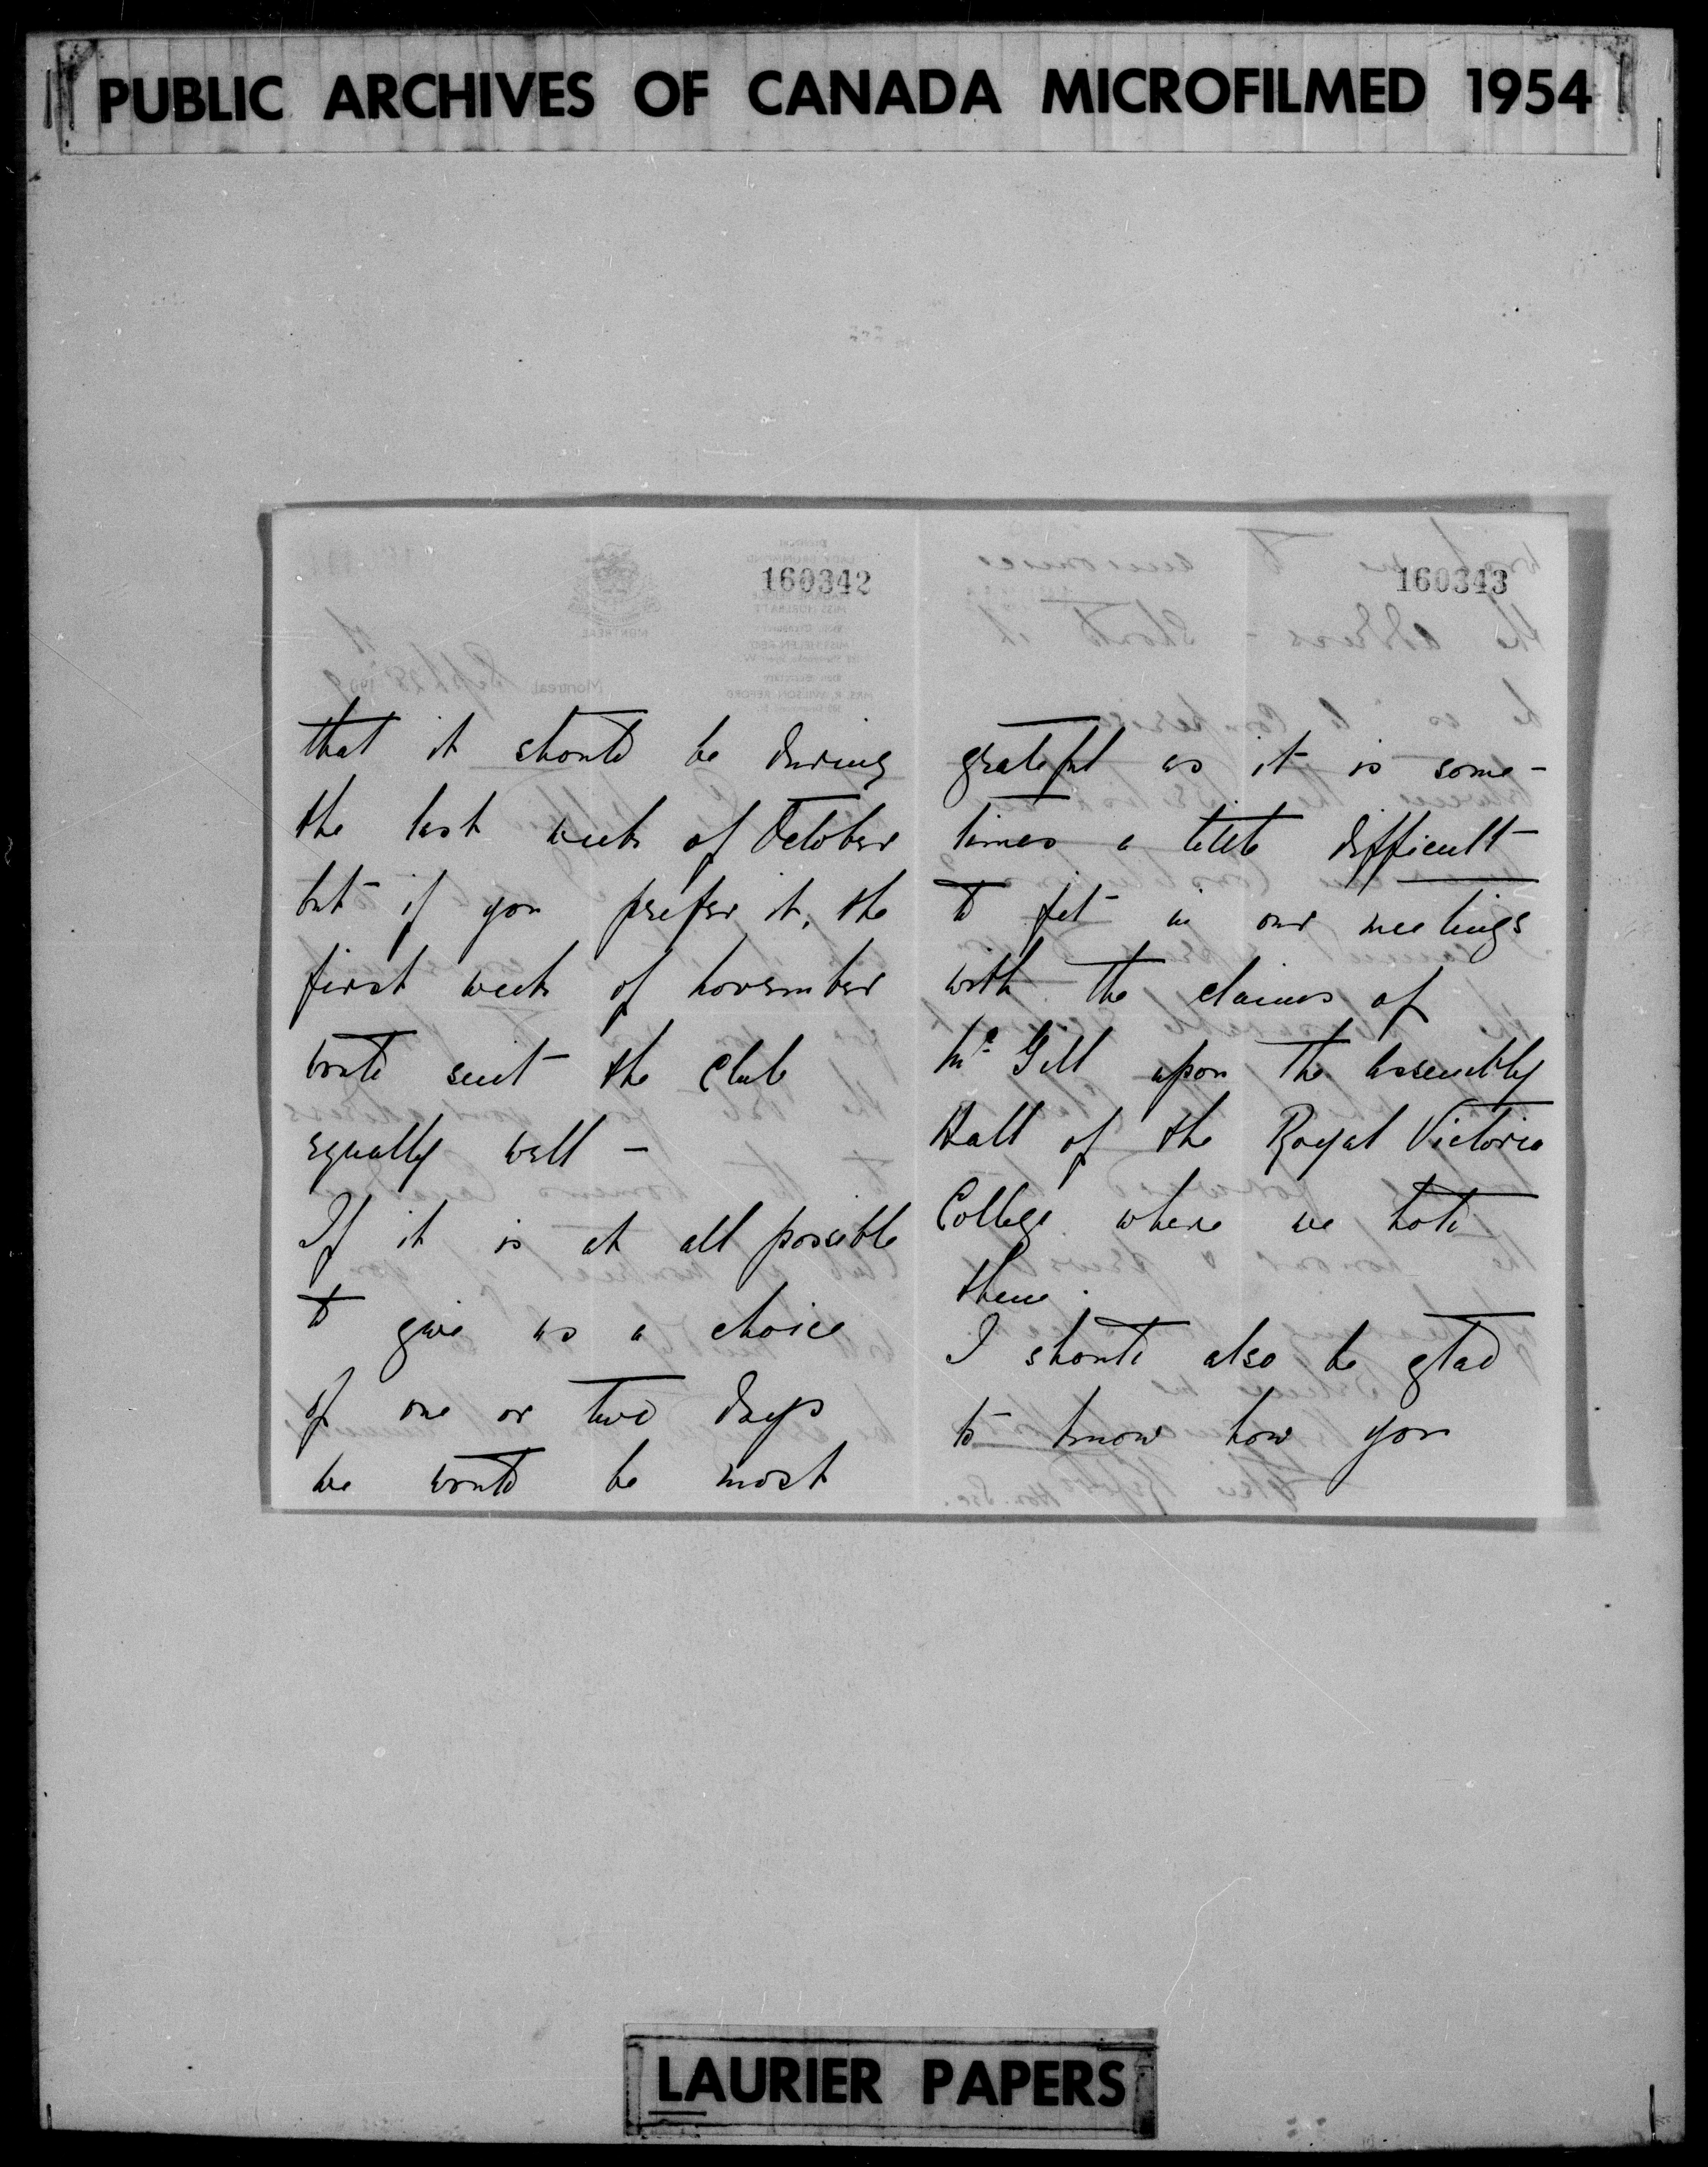 PUBLIC ARCHIVES OF CANADA MICROFILMED 1954
160342
that it should be during
the last week of October
but if you prefer it, the
first week of November
would suit the Club
equally well –
If it is at all possible
to give us a choice
of one or two days
we would be most
160343
grateful as it is some-
times a little difficult
to fit in our meetings
with the claims of
Mc Gill upon the Assembly
Hall of the Royal Victoria
College where we hold
them.
I should also be glad
to know how you
LAURIER PAPERS